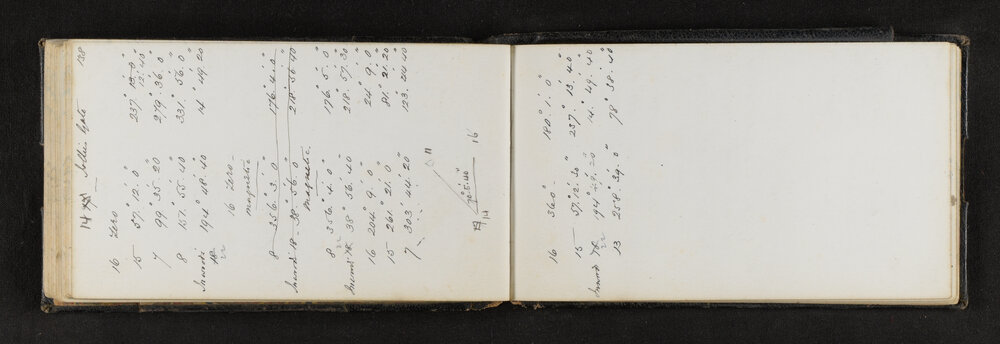 14 Gate 128
16 Zero
15 57° 12' 0" 237° 12' 40"
7 99° 35' 20" 279° 36' 0"
8 151° 55' 40" 331° 56' 0"
194° 48' 40" 14° 49' 20"
22
16 Zero
magnetic
8 356° 3' 0" 176° 4' 0"
18 38° 56' 0" 218° 56' 40"
Magnetic
8 356° 4' 0" 176° 5' 0"
22
38° 56' 40" 218° 57' 30"
16 204° 9' 0" 24° 9' 0"
15 261° 21' 0" 81° 21' 20"
7 303° 44' 20" 123° 44' 40"
11
16
14
16 360° 180° 1' 0"
15 57° 12' 30" 237° 13' 40"
194° 49' 20" 14° 49' 40"
22
13 258° 39' 0" 78° 38' 40"